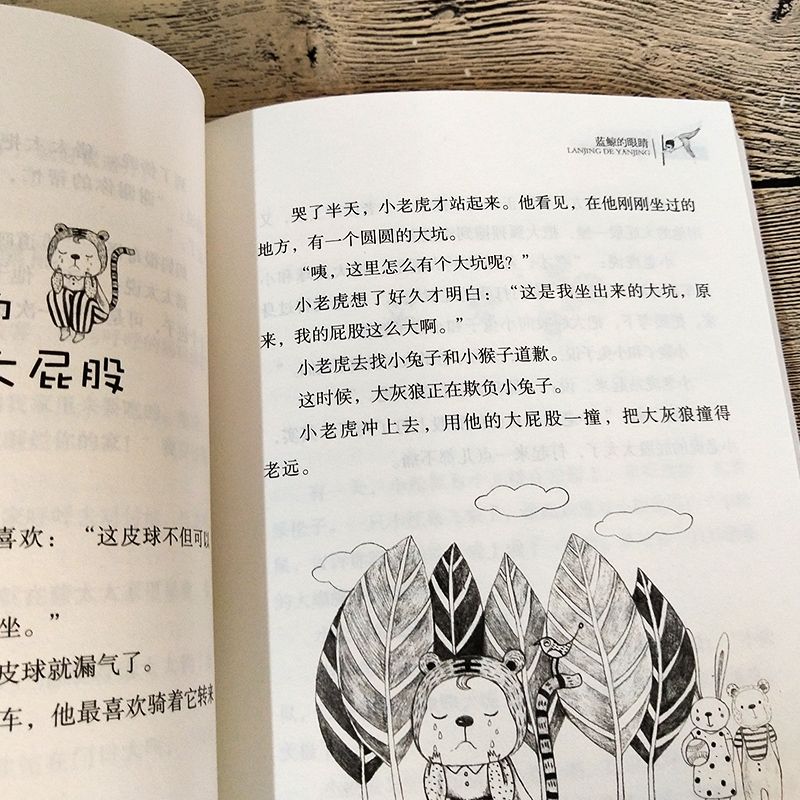 大屁股
喜欢：“这皮球不但可以
坐。”
皮球就漏气了。
车，他最喜欢骑着它转来
蓝鲸的眼睛
LANJING DE YANJING
哭了半天，小老虎才站起来。他看见，在他刚刚坐过的
地方，有一个圆圆的大坑。
“咦，这里怎么有个大坑呢？”
小老虎想了好久才明白：“这是我坐出来的大坑，原
来，我的屁股这么大啊。”
小老虎去找小兔子和小猴子道歉。
这时候，大灰狼正在欺负小兔子。
小老虎冲上去，用他的大屁股一撞，把大灰狼撞得
老远。